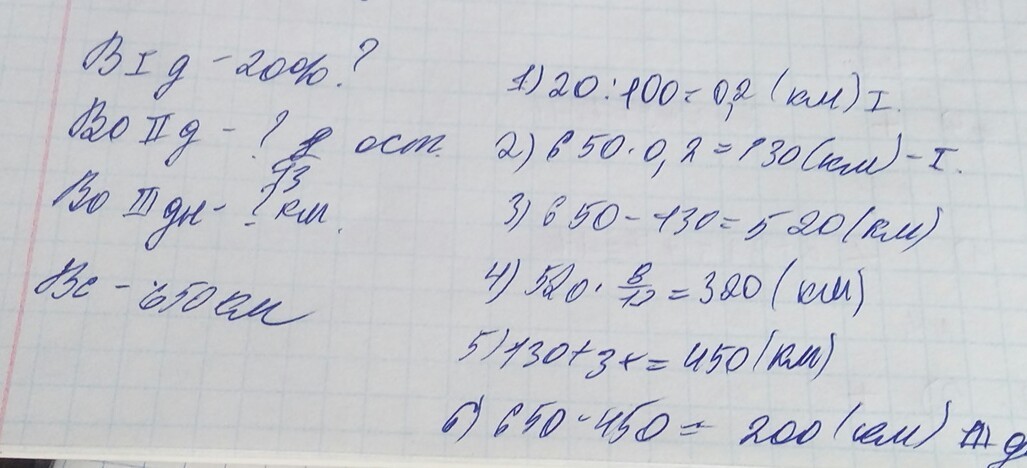 В I д - 20%?
Во II д - ? 8/13 ост.
Во III дн - ? км.
Вс - 650 км
1) 20 : 100 = 0,2 (км) I.
2) 650 · 0,2 = 130 (км) - I.
3) 650 - 130 = 520 (км)
4) 520 · 8/13 = 320 (км)
5) 130 + = 450 (км)
6) 650 - 450 = 200 (км) III д